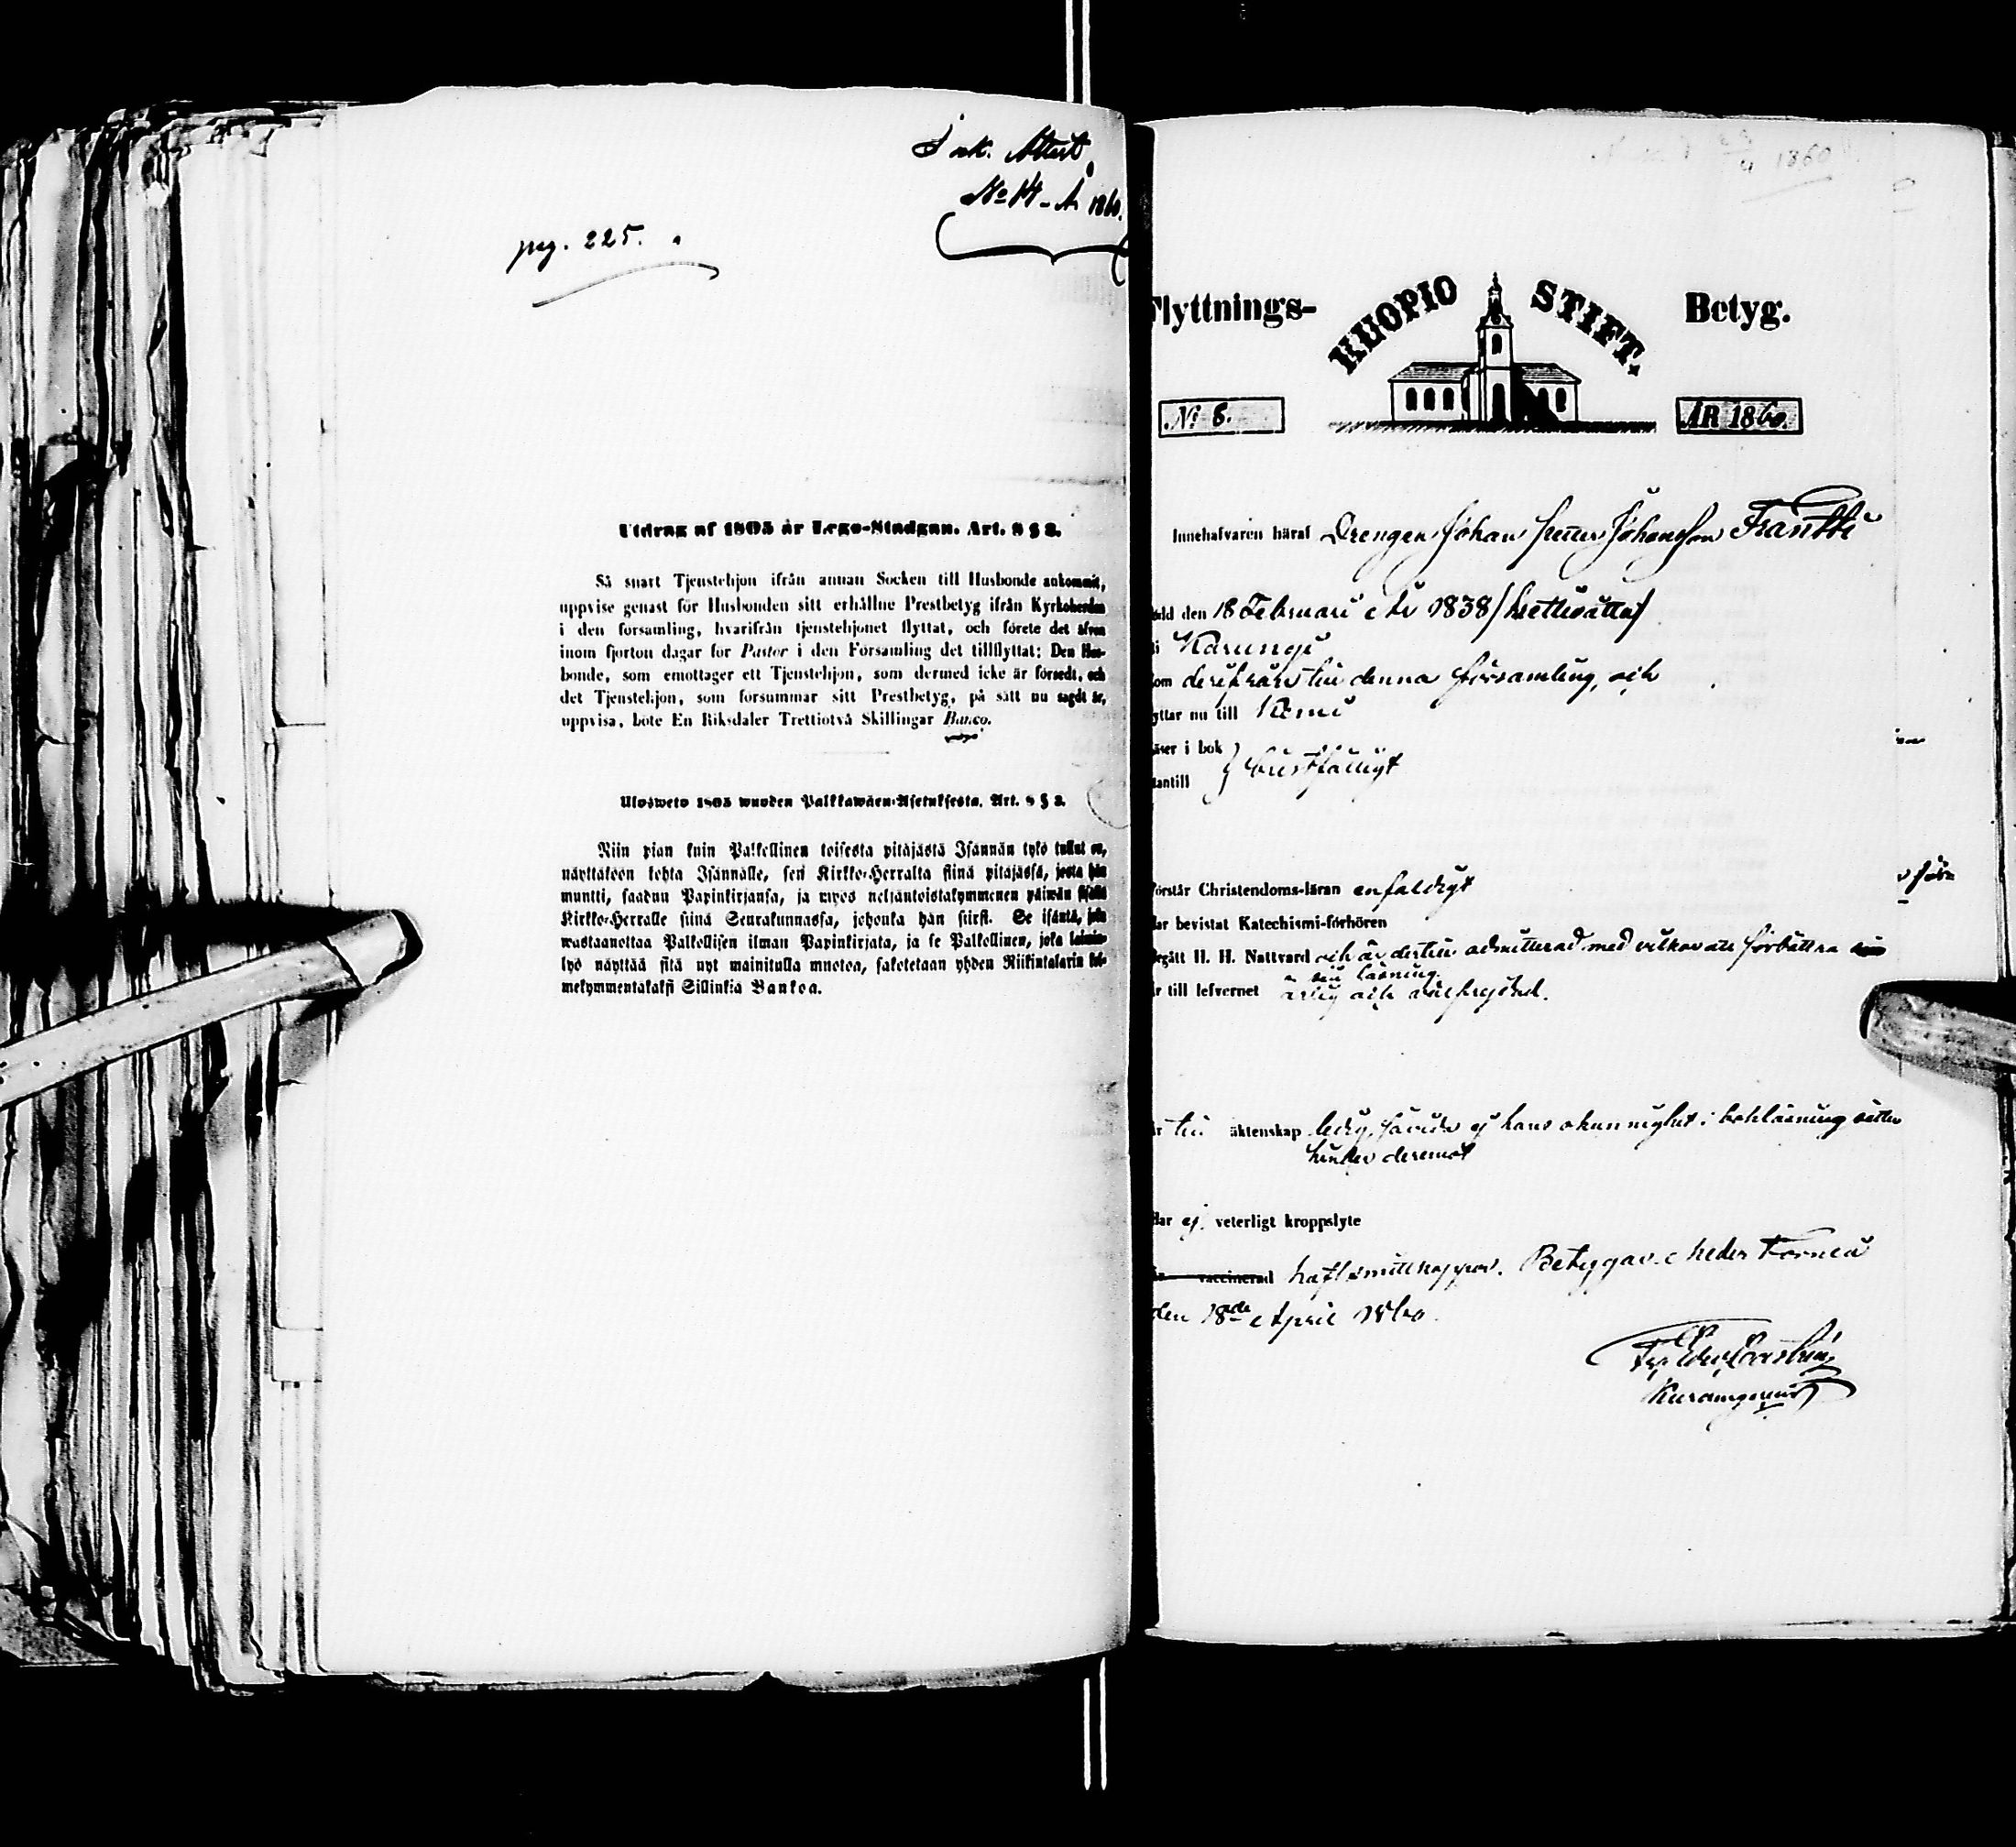 Ink. Attest
No 14 - År 1860.
pag. 225.
Utdrag af 1805 år Lego-Stadgan. Art. 8 § 2.
Så snart Tjenstehjon ifrån annan Socken till Husbonde ankommit,
uppvise genast för Husbonden sitt erhållne Prestbetyg ifrån Kyrkoherden
i den forsamling, hvarifrån tjenstehjonet flyttat, och förete det äfven
inom fjorton dagar for Pastor i den Forsamling det tillflyttat; Den Hus-
bonde, som emottager ett Tjenstehjon, som dermed icke är försedt, och
det Tjenstehjon, som forsummar sitt Prestbetyg, på sätt nu sagdt är,
uppvisa, böte En Riksdaler Trettiotvå Skillingar Banco.
Ulosweto 1805 wuoden Palkkawäen-Asetuksesta. Art. 8 § 2.
Niin pian kuin Palkollinen toisesta pitäjästä Isännän tykö tullut on,
näyttäköön kohta Isännälle, sen Kirkko-Herralta siinä pitäjässä, josta hän
muutti, saadun Papinkirjansa, ja myös neljäntoistakymmenen päiwän sisällä
Kirkko-Herralle siinä Seurakunnassa, johonka hän siirsi. Se isäntä, joka
wastaanottaa Palkollisen ilman Papinkirjata, ja se Palkollinen, joka laimin-
lyö näyttää sitä nyt mainitulla muotoa, sakotetaan yhden Riikintalarin kol-
mekymmentäkaksi Sillinkiä Bankoa.
1860
Flyttnings- KUOPIO STIFT. Betyg.
No 8. ÅR 1860.
Innehafvaren häraf Drengen Johan Johansson Frantti
född den 18 Februari År 1838
i Karungi
om derifrån till denna församling, och
yttar nu till Kemi
äser i bok
antill
förstår Christendoms-läran enfaldigt
ar bevistat Katechismi-förhören
egått H. H. Nattvard och är dertill admitterad med vilkor att förbättra
sin läsning.
r till lefvernet ärlig och välfrejdad.
är till äktenskap ledig, såvida ej hans okunnighet i bokläsning sätter
hinder deremot
Har ej veterligt kroppslyte
vaccinerad haft smittkoppor. Betygar. Neder Torneå
den 18de April 1860.